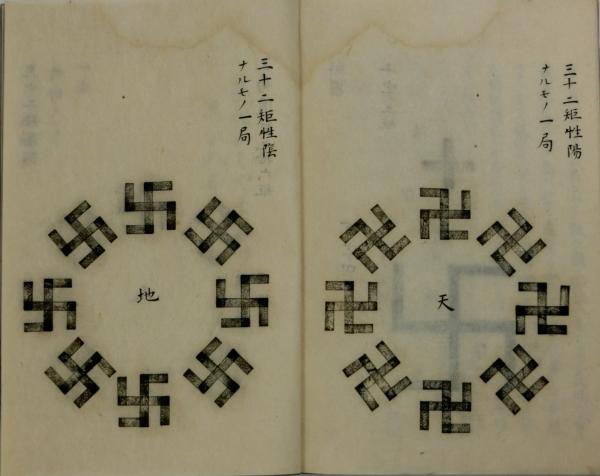 三十二矩性陽
ナルモノ一局
天
三十二矩性陰
ナルモノ一局
地